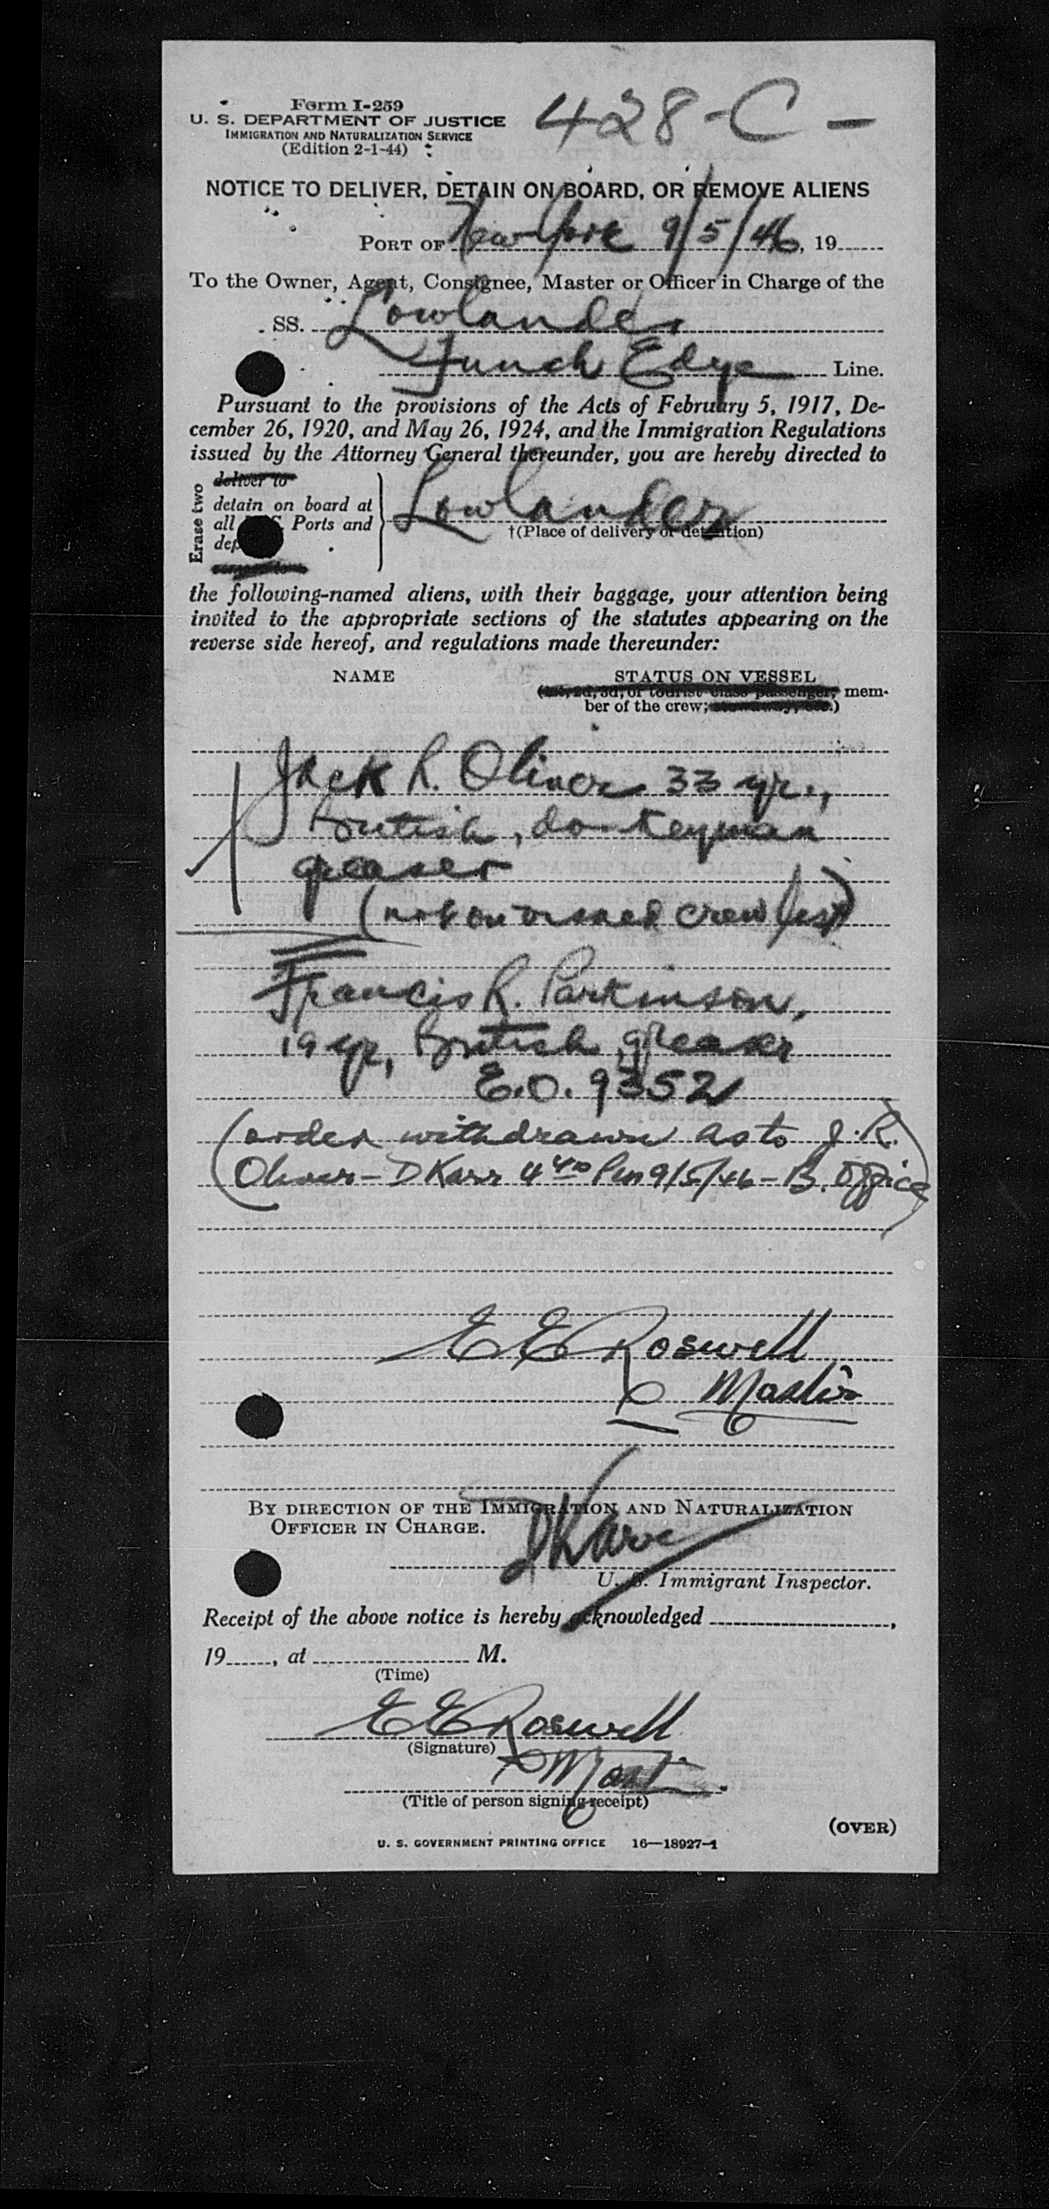 Form I-259
428-C-
U. S. DEPARTMENT OF JUSTICE
IMMIGRATION AND NATURALIZATION SERVICE
(Edition 2-1-44)
NOTICE TO DELIVER, DETAIN ON BOARD, OR REMOVE ALIENS
PORT OF New York 9/5/46, 19
To the Owner, Agent, Consignee, Master or Officer in Charge of the
SS. Lowlander
Funch Edye Line.
Pursuant to the provisions of the Acts of February 5, 1917, De-
cember 26, 1920, and May 26, 1924, and the Immigration Regulations
issued by the Attorney General thereunder, you are hereby directed to
Erase two
deliver to
detain on board at
all Ports and
dep
Lowlander
†(Place of delivery or detention)
the following-named aliens, with their baggage, your attention being
invited to the appropriate sections of the statutes appearing on the
reverse side hereof, and regulations made thereunder:
NAME STATUS ON VESSEL
(1st, 2d, 3d, or tourist class passenger; mem-
ber of the crew;
Jack R. Oliver 33 yr.,
British, donkeyman
greaser
(not on visaed crew list)
Francis R. Parkinson,
19 yr, British greaser
E.O. 9352
(order withdrawn as to J.R.
Oliver - DKarr 4 40 Pm 9/5/46 - B. Office)
E E Roswell
Master
BY DIRECTION OF THE IMMIGRATION AND NATURALIZATION
OFFICER IN CHARGE.
DKarr
U. S. Immigrant Inspector.
Receipt of the above notice is hereby acknowledged ,
19 , at M.
(Time)
E E Roswell
(Signature)
Mast
(Title of person signing receipt)
(OVER)
U. S. GOVERNMENT PRINTING OFFICE 16—18927-1